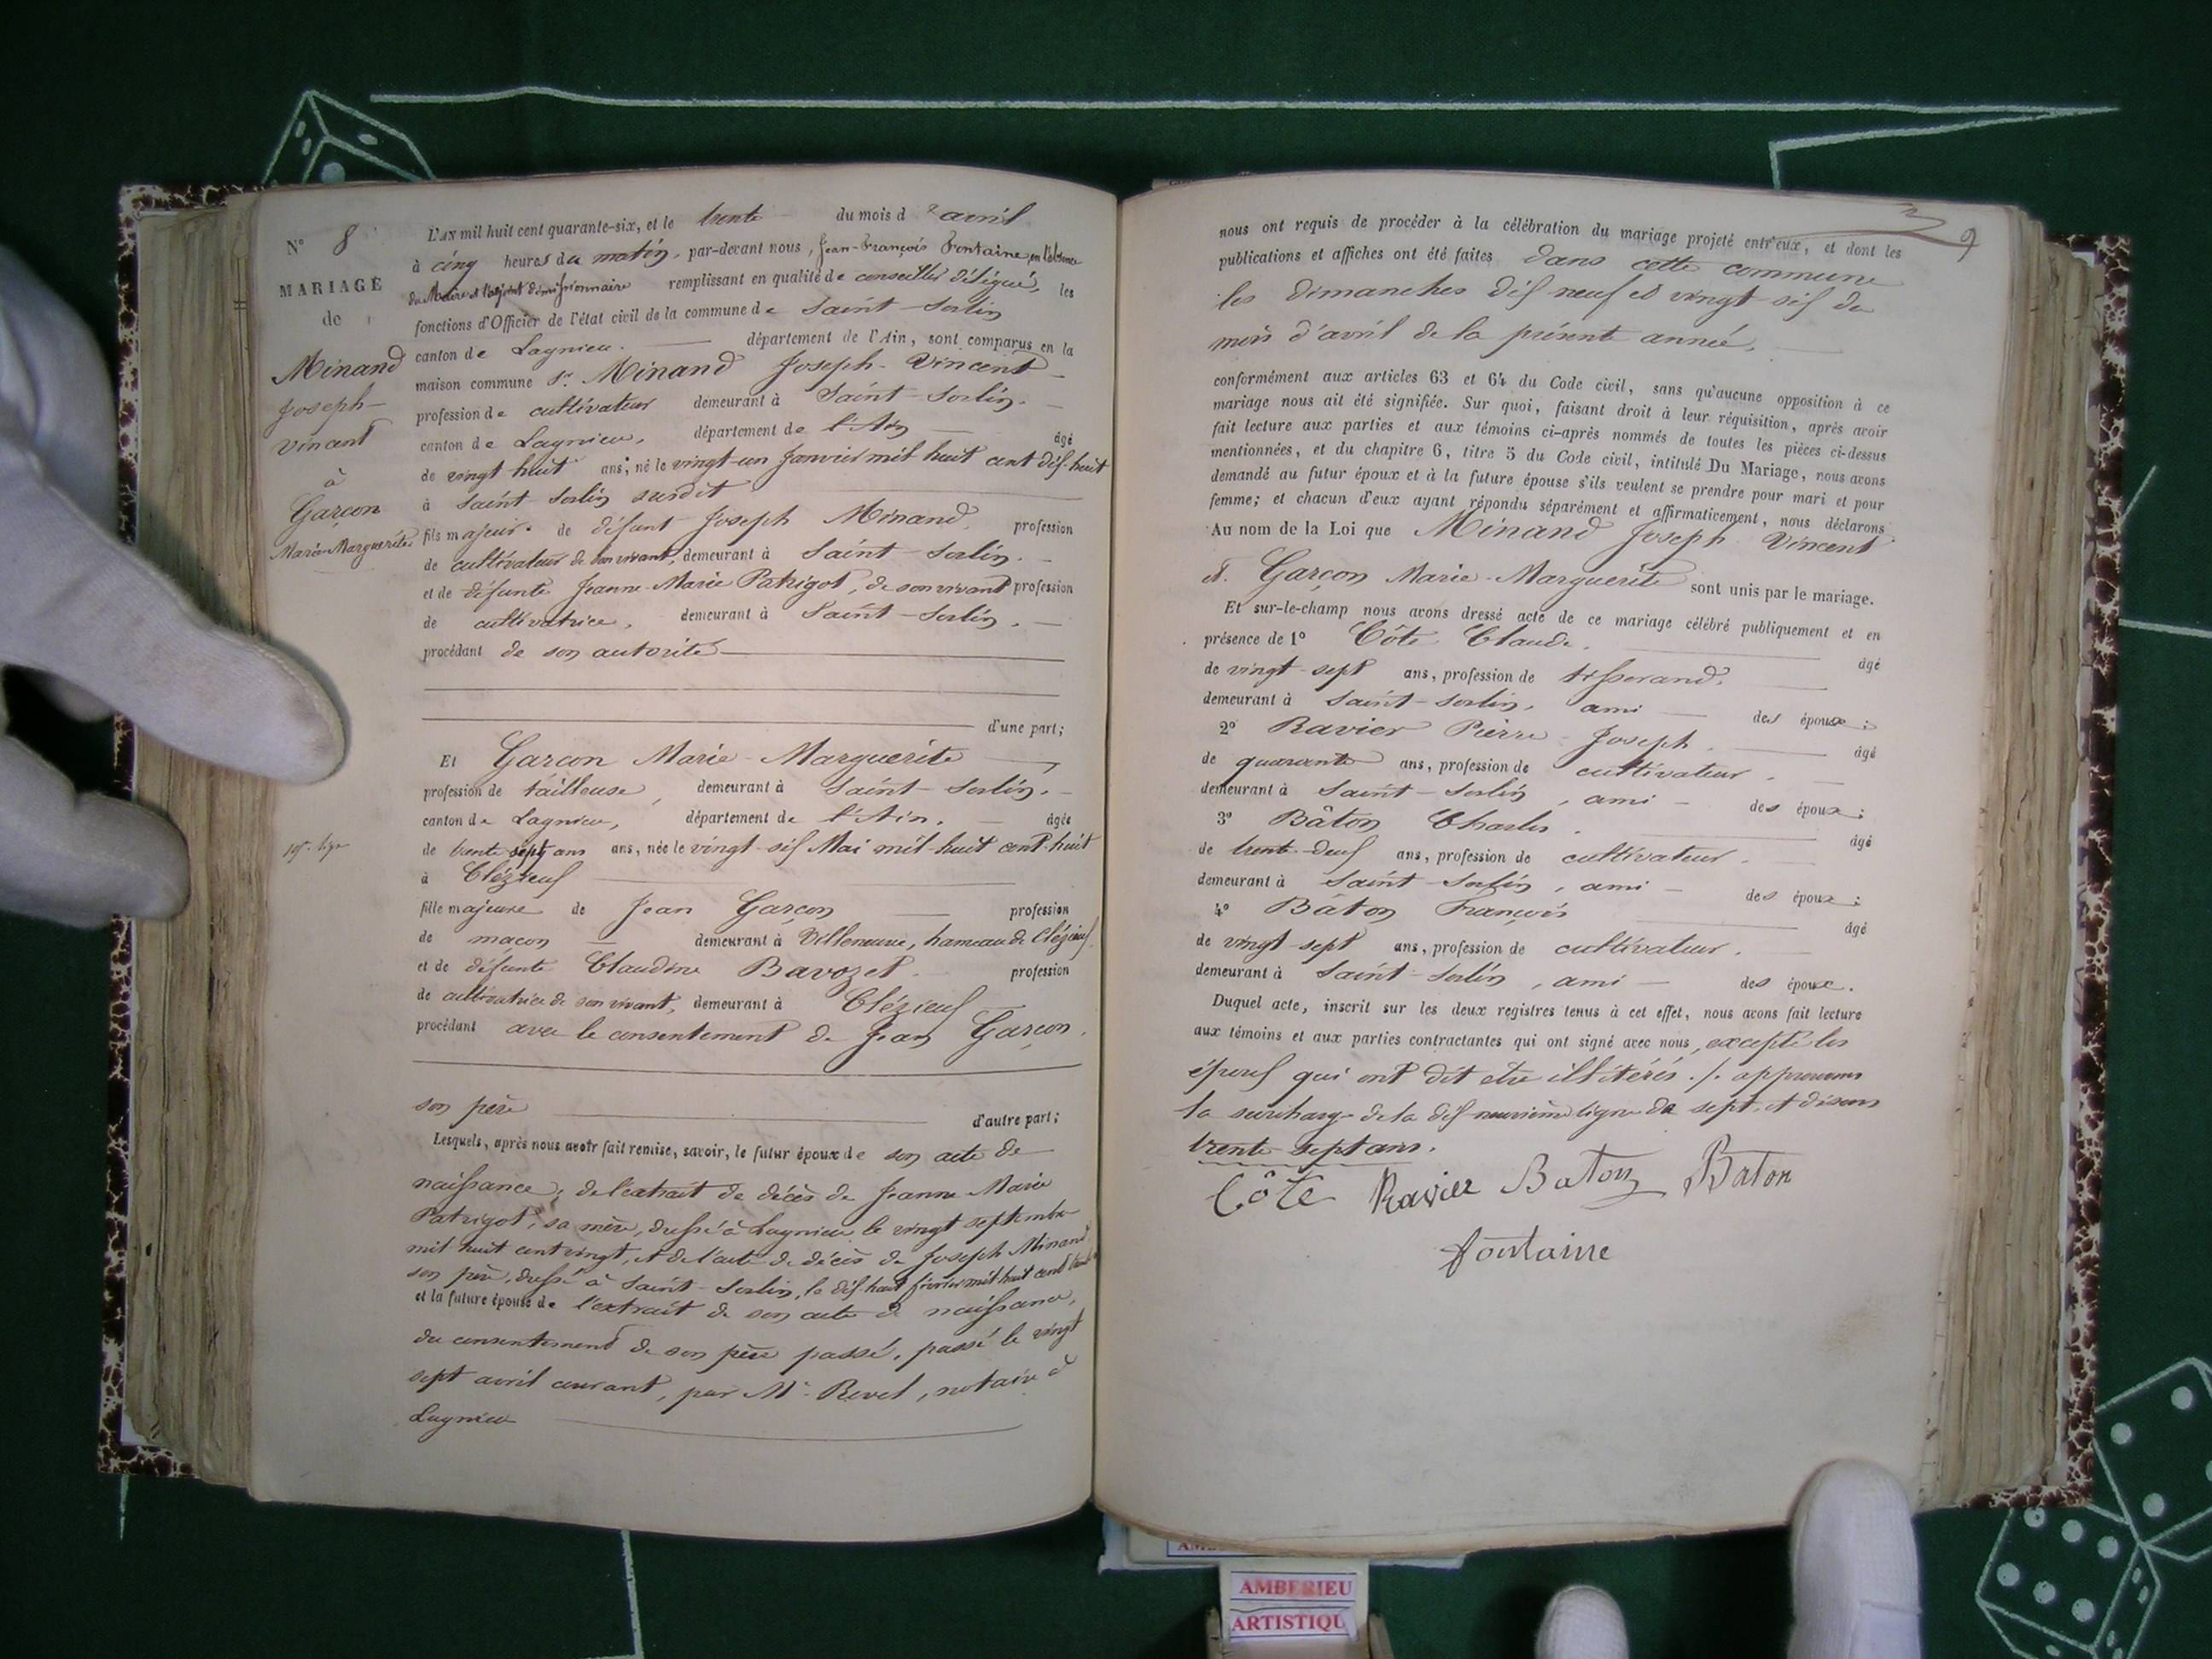 N° 8
MARIAGE
de
Minand
Joseph-
Vincent
à
Garçon
Marie-Marguerite
L'AN mil huit cent quarante-six, et le trente du mois d'avril
à cinq heures du matin, par-devant nous, Jean-François Fontaine, en l'absence
du Maire et l'adjoint démissionnaire remplissant en qualité de conseiller délégué, les
fonctions d'Officier de l'état civil de la commune de Saint-Sorlin
canton de Lagnieu. département de l'Ain, sont comparus en la
maison commune Sr. Minand Joseph-Vincent
profession de cultivateur demeurant à Saint-Sorlin.
canton de Lagnieu, département de l'Ain âgé
de vingt huit ans, né le vingt-un Janvier mil huit cent dix-huit
à Saint-Sorlin susdit
fils majeur de défunt Joseph Minand. profession
de cultivateur de son vivant, demeurant à Saint-Sorlin.
et de défunte Jeanne-Marie Patrigot, de son vivant profession
de cultivatrice, demeurant à Saint-Sorlin.
procédant de son autorité
d'une part;
Et Garçon Marie-Marguerite
profession de tailleuse, demeurant à Saint-Sorlin.
canton de Lagnieu, département de l'Ain. âgée
19e lige
de trente sept ans ans, née le vingt-six Mai mil-huit cent-huit
à Clézieux
fille majeure de Jean Garçon profession
de maçon demeurant à Villeneuve, hameau de Clézieux.
et de défunte Claudine Bavozet. profession
de cultivatrice de son vivant, demeurant à Clézieux
procédant avec le consentement de Jean Garçon.
son père d'autre part;
Lesquels, après nous avoir fait remise, savoir, le futur époux de son acte de
naissance; de l'extrait de décès de Jeanne-Marie
Patrigot, sa mère, dressé à Lagnieu le vingt septembre
mil huit cent vingt, et de l'acte de décès de Joseph Minand
son père, dressé à Saint-Sorlin, le dix-huit février mil huit cent
et la future épouse de l'extrait de son acte de naissance,
du consentement de son père passé, passé le vingt
sept avril courant, par Me. Revel, notaire à
Lagnieu
9
nous ont requis de procéder à la célébration du mariage projeté entr'eux, et dont les
publications et affiches ont été faites dans cette commune
les dimanches dix neuf et vingt six du
mois d'avril de la présente année.
conformément aux articles 63 et 64 du Code civil, sans qu'aucune opposition à ce
mariage nous ait été signifiée. Sur quoi, faisant droit à leur réquisition, après avoir
fait lecture aux parties et aux témoins ci-après nommés de toutes les pièces ci-dessus
mentionnées, et du chapitre 6, titre 5 du Code civil, intitulé Du Mariage, nous avons
demandé au futur époux et à la future épouse s'ils veulent se prendre pour mari et pour
femme; et chacun d'eux ayant répondu séparément et affirmativement, nous déclarons
Au nom de la Loi que Minand Joseph Vincent
et. Garçon Marie-Marguerite sont unis par le mariage.
Et sur-le-champ nous avons dressé acte de ce mariage célébré publiquement et en
présence de 1° Côte Claude. âgé
de vingt-sept ans, profession de tisserand.
demeurant à Saint-Sorlin, ami des époux;
2° Ravier Pierre-Joseph. âgé
de quarante ans, profession de cultivateur.
demeurant à Saint-Sorlin, ami des époux;
3° Bâton Charles. âgé
de trente-deux ans, profession de cultivateur.
demeurant à Saint-Sorlin, ami des époux;
4° Bâton François âgé
de vingt-sept ans, profession de cultivateur.
demeurant à Saint-Sorlin, ami des époux.
Duquel acte, inscrit sur les deux registres tenus à cet effet, nous avons fait lecture
aux témoins et aux parties contractantes qui ont signé avec nous, excepté les
époux qui ont dit etre illitérés ./. approuvons
la surcharge de la dix-neuvième ligne de sept, et disons
trente-sept ans.
Côte Ravier Baton Baton
fontaine
AMBERIEU
ARTISTIQU